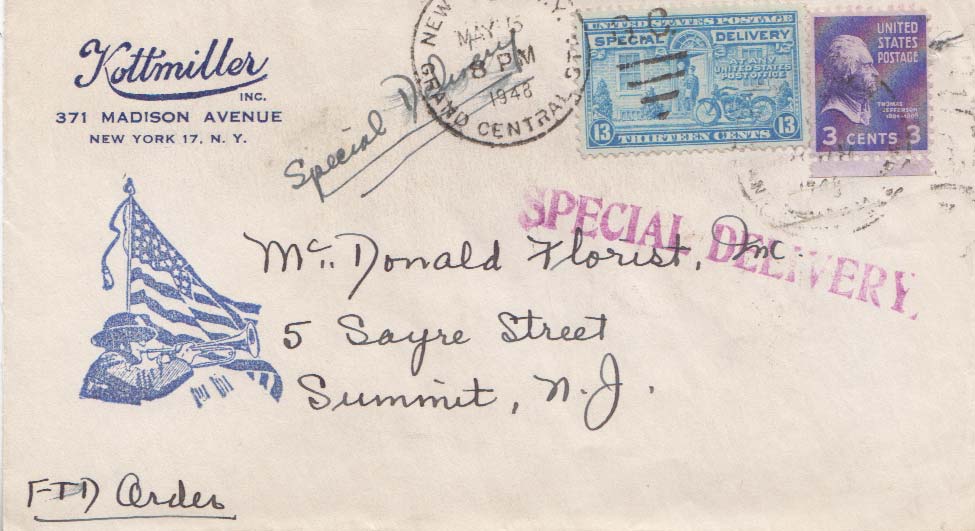 Kottmiller
INC.
371 MADISON AVENUE
NEW YORK 17, N. Y.
Special Delivery
NEW
MAY 15
8 PM
1948
GRAND CENTRAL
UNITED STATES POSTAGE
SPECIAL DELIVERY
AT ANY
UNITED STATES
POST OFFICE
13 THIRTEEN CENTS 13
UNITED
STATES
POSTAGE
THOMAS
JEFFERSON
3 CENTS 3
1948
SPECIAL DELIVERY
McDonald Florist, Inc.
5 Sayre Street
Summit, N.J.
FTD Order